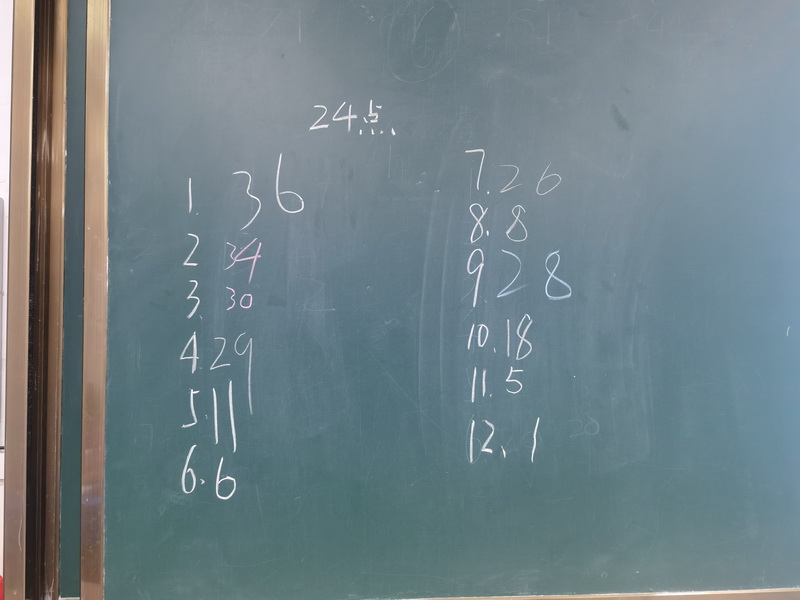 24点
1. 36
2 34
3. 30
4.29
5.11
6.6
7.26
8.8
9.28
10.18
11.5
12.1